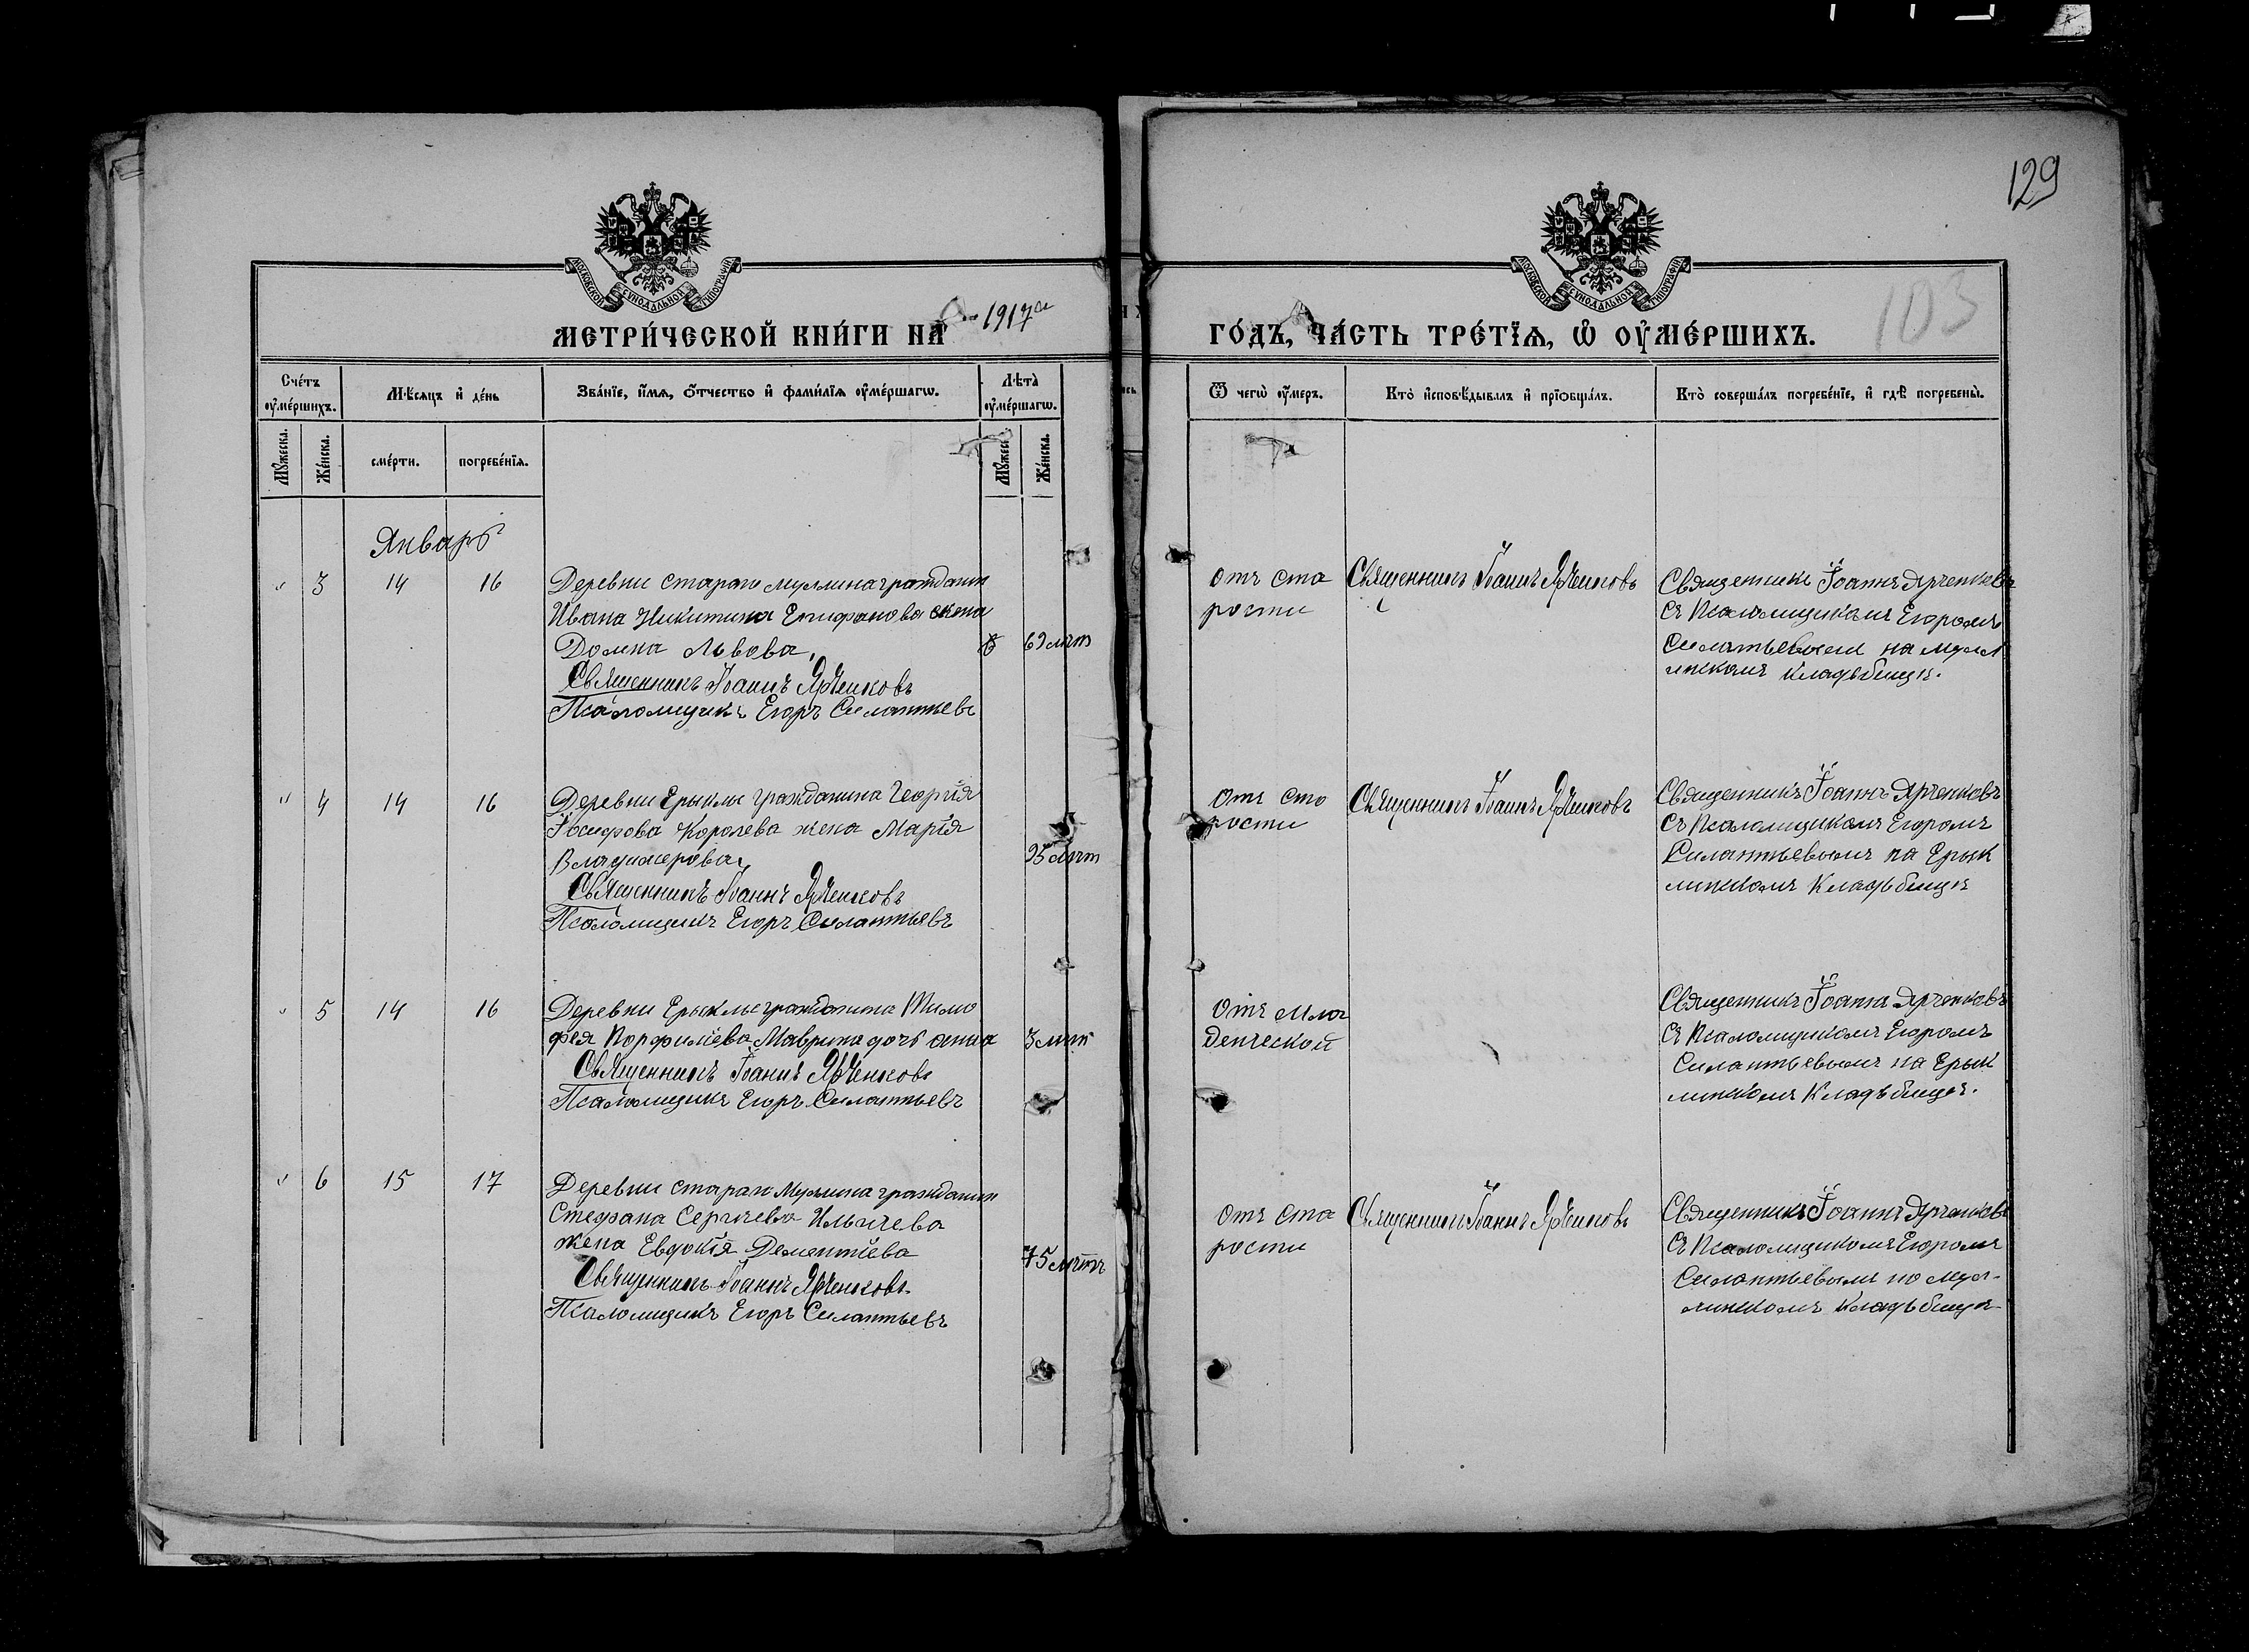 129
103
МОСКОВСКОЙ СѴНОДАЛЬНОЙ ТИПОГРАФІИ
МОСКОВСКОЙ СѴНОДАЛЬНОЙ ТИПОГРАФІИ
МЕТРИ́ЧЕСКОЙ КНИ́ГИ НА̀ 1917й ГО́ДЪ, ЧА́СТЬ ТРЕ́ТЇѦ, Ѡ҆ ОУ҆МЕ́РШИХЪ.
Сче́тъ оу҆ме́ршихъ.
Мѣ́сяцъ и҆ де́нь
Зва́нїе, и҆́мѧ, ѻ҆́тчество и҆ фами́лїѧ оу҆ме́ршагѡ.
Лѣ́та оу҆ме́ршагѡ.
Ѿ чегѡ̀ оу҆́меръ.
Кто̀ и҆сповѣ́дывалъ и҆ прїѡбща́лъ.
Кто̀ соверша́лъ погребе́нїе, и҆ гдѣ̀ погребены̀.
Мꙋ́жеска.
Же́нска.
сме́рти.
погребе́нїѧ.
Мꙋ́жеск
Же́нска.
Январь
" 3 14 16
Деревни стараго Муллина граждани
Ивана Никитина Епифанова жена
Домна Львова,
Священникъ Іоаннъ Ярченковъ
Псаломщикъ Егоръ Силантьевъ
лѣт
отъ ста
рости
Священникъ Іоаннъ Ярченковъ
Священникъ Іоаннъ Ярченковъ
съ Псаломщикомъ Егоромъ
Силантьевымъ на Мулл
инскомъ кладьбищѣ.
" 4 14 16
Деревни Ерыклы гражданина Георгія
Іосифова Королева жена Марія
Владимерова,
Священникъ Іоаннъ Ярченковъ
Псаломщикъ Егоръ Силантьевъ
95 лѣт
отъ ста
рости
Священникъ Іоаннъ Ярченковъ
Священникъ Іоаннъ Ярченковъ
съ Псаломщикомъ Егоромъ
Силантьевымъ на Ерык
линскомъ кладьбищѣ
" 5 14 16
Деревни Ерыклы гражданина Тимо
фея Порфиліева Маврина дочь Анна
Священникъ Іоаннъ Ярченковъ
Псаломщикъ Егоръ Силантьевъ
3 лѣт
отъ мла
денческой
Священникъ Іоаннъ Ярченковъ
съ Псаломщикомъ Егоромъ
Силантьевымъ на Ерык
линскомъ кладьбищѣ.
" 6 15 17
Деревни стараго Муллина граждани
Стефана Сергѣева Ильичева
жена Евдокія Дементіева
Священникъ Іоаннъ Ярченковъ
Псаломщикъ Егоръ Силантьевъ
75 лѣтъ
отъ ста
рости
Священникъ Іоаннъ Ярченковъ
Священникъ Іоаннъ Ярченковъ
съ Псаломщикомъ Егоромъ
Силантьевымъ на Мул-
линскомъ кладьбищѣ